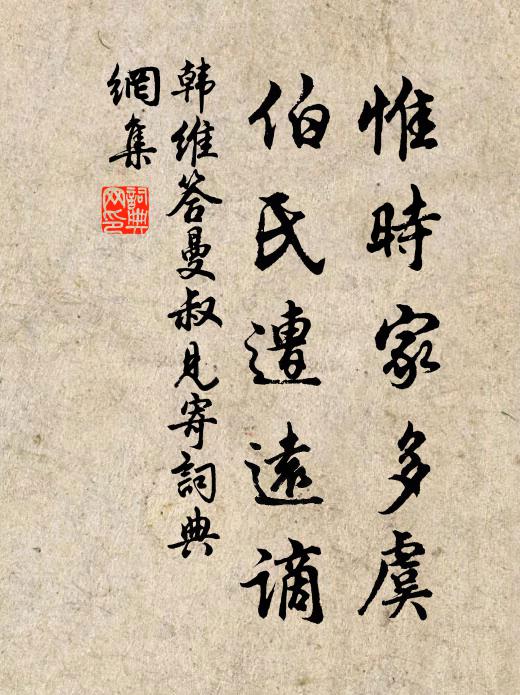 惟時家多虞
伯氏遭遠謫
韩維答曼叔見寄詞典
網集
詞典
网印